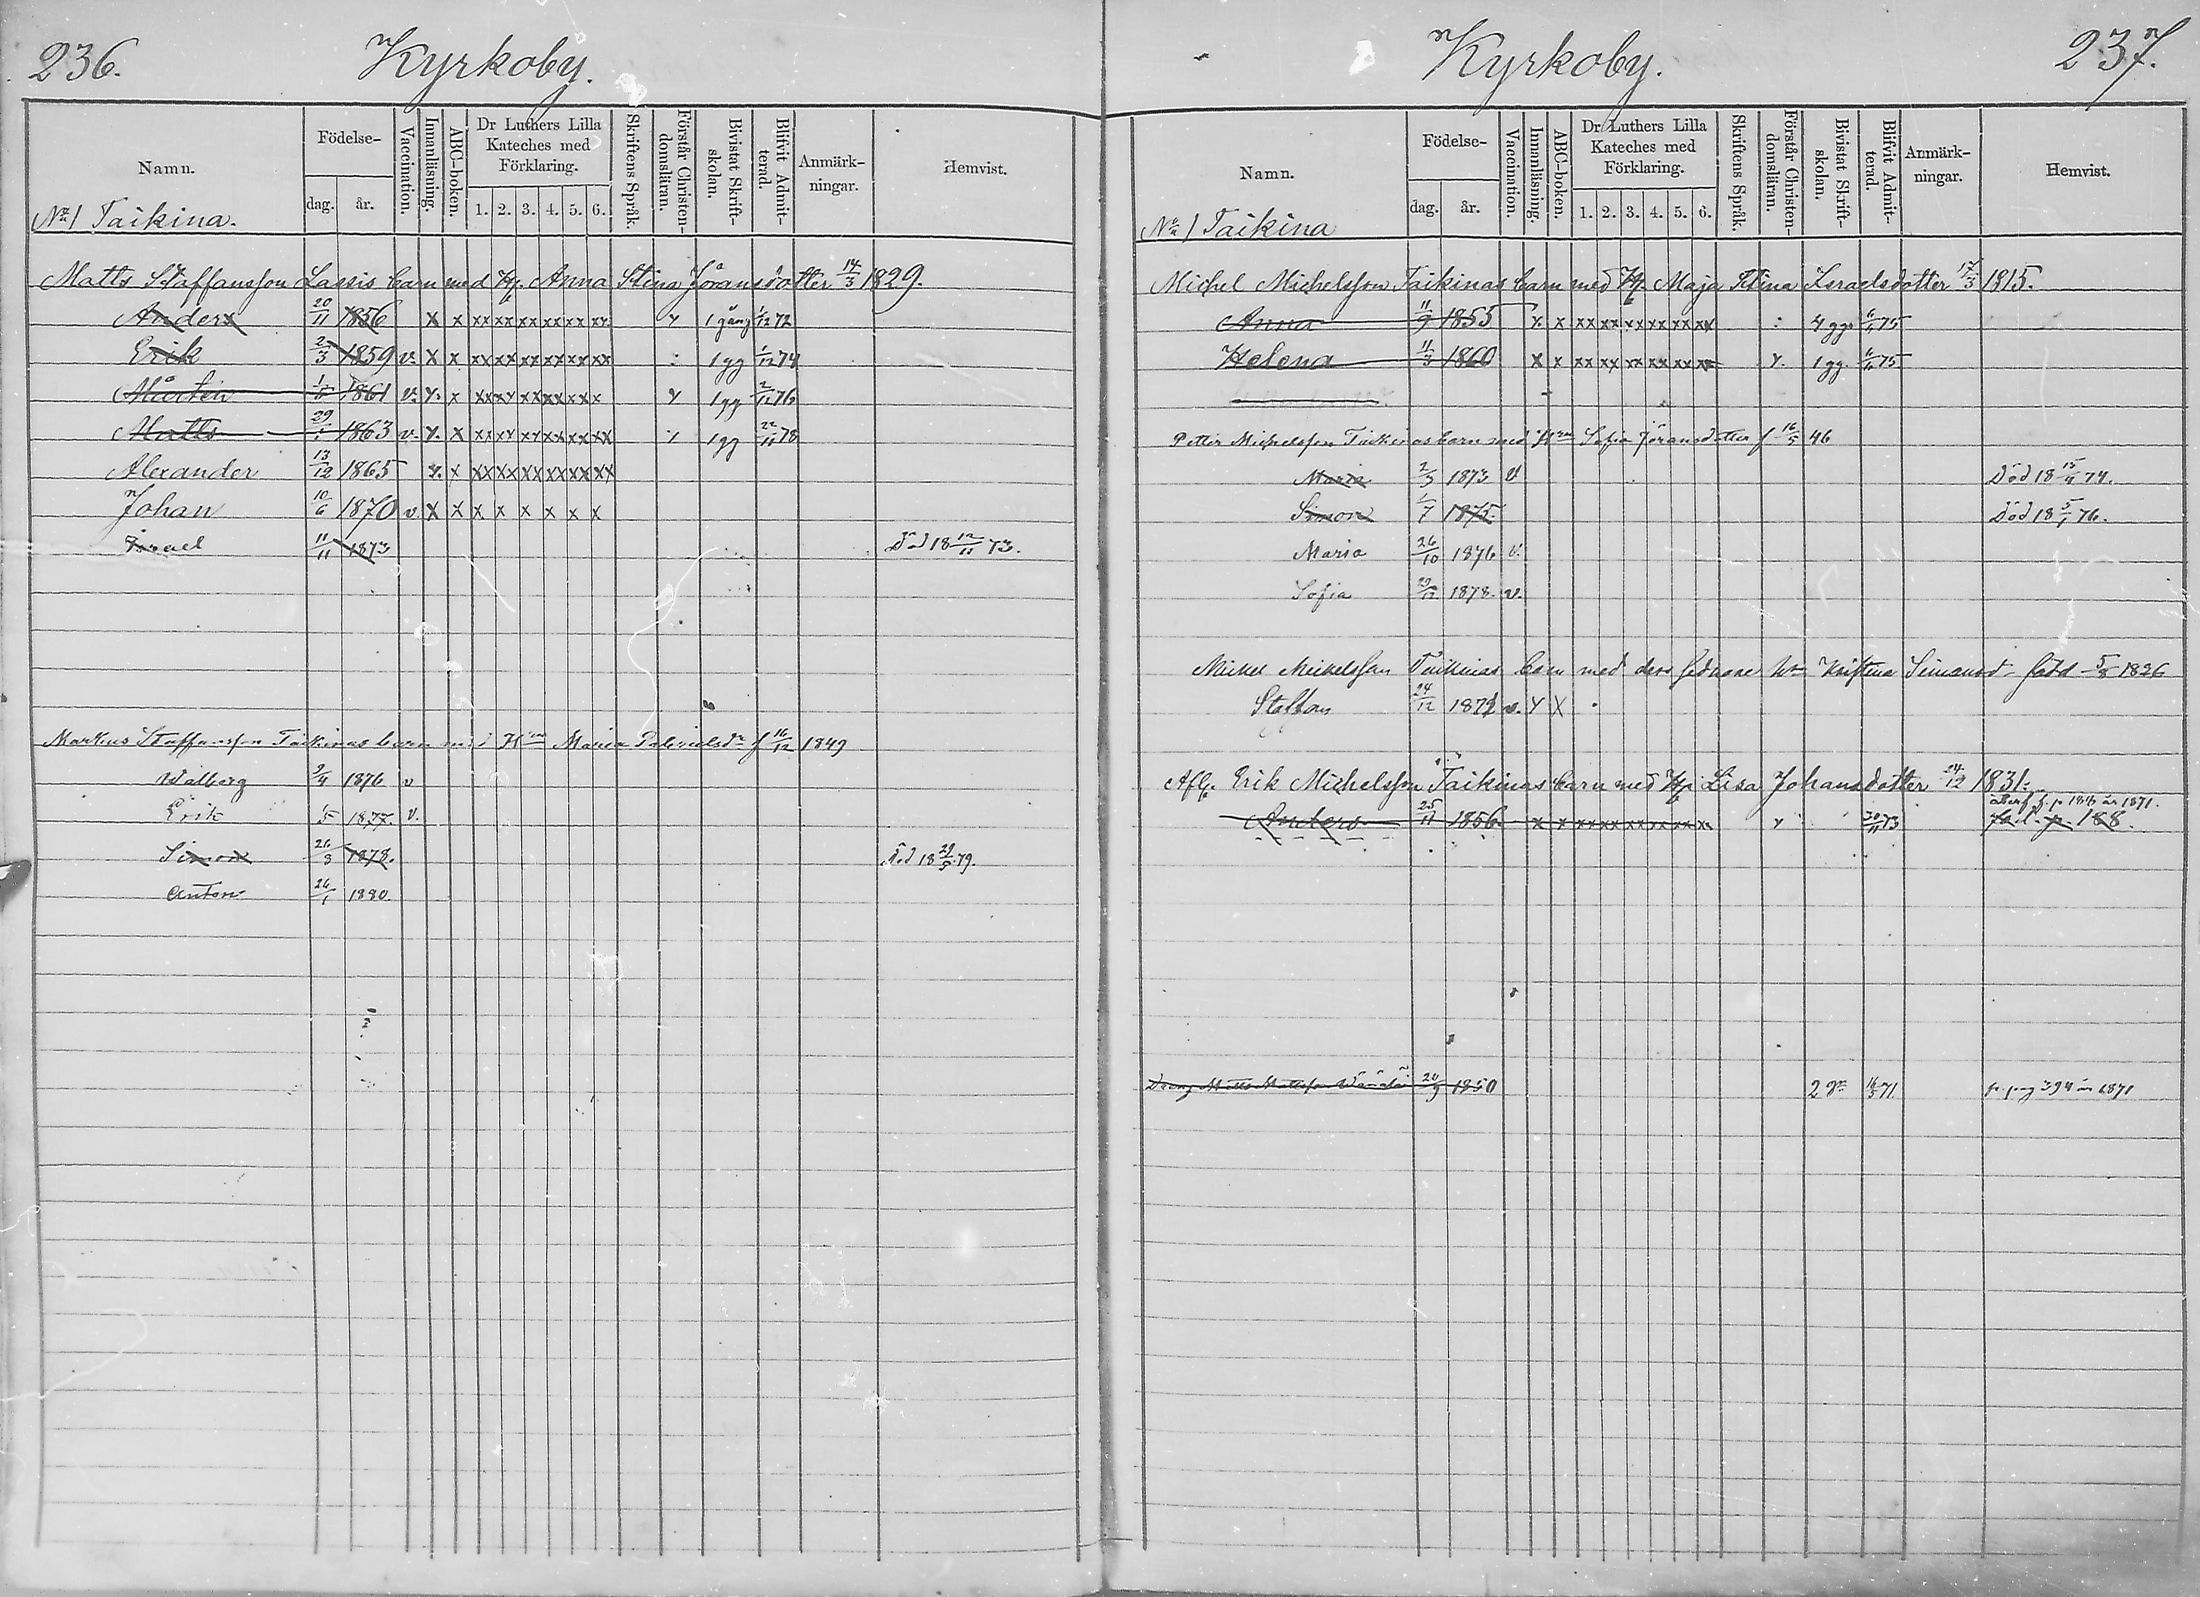 236. Kyrkoby.
Namn. Födelse- dag. år. Vaccination. Innanläsning. ABC-boken. Dr Luthers Lilla Kateches med Förklaring. 1. 2. 3. 4. 5. 6. Skriftens Språk. Förstår Christen-domsläran. Bivistat Skrift-skolan. Blifvit Admit-terad. Anmärk-ningar. Hemvist.
No 1 Taikina.
Matts Staffansson Lassis barn med H. Anna Stina Jöransdotter 14/3 1829.
Anders 20/11 1856 x x xx xx xx xx xx xx y 1 gång 1/12 72
Erik 2/3 1859 v. x x xx xx xx xx xx xx : 1 gg 1/12 74
Mårten 1861 v. y. x xx xy xx xx xx x y 1 gg 2/12 76
Matts 29/1 1863 v. y. x xx xy xy xx xx xx 1 gg 22/11 78
Alexander 13/12 1865 x xx xx xx xx xx xx
Johan 10/6 1870 v x x x x x x x x
Israel 11/11 1873 Död 18 12/11 73.
Markus Staffansson Taikinas barn med H Maria f 16/12 1849
Walborg 9/4 1876 v
Erik 1877. v.
Simon 26/8 1878. Död 18 29/8 79.
Anton 26/1 1880.
237. Kyrkoby.
Namn. Födelse- dag. år. Vaccination. Innanläsning. ABC-boken. Dr Luthers Lilla Kateches med Förklaring. 1. 2. 3. 4. 5. 6. Skriftens Språk. Förstår Christen-domsläran. Bivistat Skrift-skolan. Blifvit Admit-terad. Anmärk-ningar. Hemvist.
No 1 Taikina
Michel Michelsson Taikinas barn med H. Maja Stina Israelsdotter 17/3 1815.
Anna 11/9 1855 x x xx xx xx xx xx xx : 4 gg. 6/6 75
Helena 11/3 1860 x x xx xx xx xx xx x y. 1 gg. 6/6 75
Petter Michelsson Taikinas barn med H Sofia Jöransdotter f 16/5 46
Maria 2/3 1873 v Död 18 15/4 74.
Simon 1/7 1875. Död 18 5/1 76.
Maria 26/10 1876 v.
Sofia 29/12 1878. v.
Michel Michelsson Taikinas barn med dess hedna Kristina Simonsd. född 5/8 1826
Staffan 24/12 1872 v. y x
Afl. Erik Michelsson Taikinas barn med H. Lisa Johansdotter 24/12 1831.
år 1871.
Anders 25/11 1856. x x xx xx xx xx xx x y 30/11 73 p. 188.
Dreng Matts Mattsson 20/9 1850 2 16/5 71 p. pag 394 år 1871